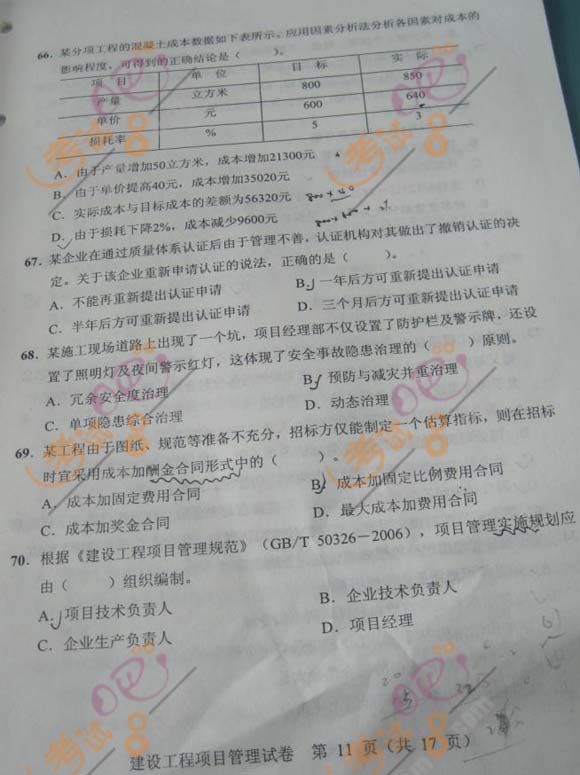 66. 某分项工程的混凝土成本数据如下表所示。应用因素分析法分析各因素对成本的
影响程度，可得到的正确结论是（ ）。
项 目 单 位 目 标 实 际
产量 立方米 800 850
单价 元 600 640
损耗率 % 5 3
A．由于产量增加50立方米，成本增加21300元
B．由于单价提高40元，成本增加35020元
C．实际成本与目标成本的差额为56320元
D．由于损耗下降2%，成本减少9600元
67. 某企业在通过质量体系认证后由于管理不善，认证机构对其做出了撤销认证的决
定。关于该企业重新申请认证的说法，正确的是（ ）。
A．不能再重新提出认证申请 B．一年后方可重新提出认证申请
C．半年后方可重新提出认证申请 D．三个月后方可重新提出认证申请
68. 某施工现场道路上出现了一个坑，项目经理部不仅设置了防护栏及警示牌，还设
置了照明灯及夜间警示红灯，这体现了安全事故隐患治理的（ ）原则。
A．冗余安全度治理 B．预防与减灾并重治理
C．单项隐患综合治理 D．动态治理
69. 某工程由于图纸、规范等准备不充分，招标方仅能制定一个估算指标，则在招标
时宜采用成本加酬金合同形式中的（ ）。
A．成本加固定费用合同 B．成本加固定比例费用合同
C．成本加奖金合同 D．最大成本加费用合同
70. 根据《建设工程项目管理规范》（GB/T 50326－2006），项目管理实施规划应
由（ ）组织编制。
A．项目技术负责人 B．企业技术负责人
C．企业生产负责人 D．项目经理
建设工程项目管理试卷 第 11 页（共 17 页）